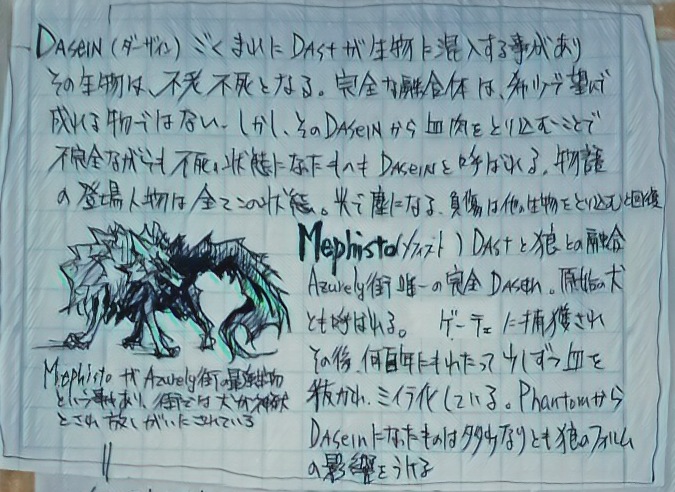 DASEIN（ダーザイン）ごくまれにDAStが生物に混入する事があり
その生物は、不老不死となる。完全な融合体は、望んで
成れる物ではない。しかし、そのDASEINから血肉をとり込むことで
不完全ながらも不死の状態になったものもDASEINと呼ばれる。物語
の登場人物は全てこの状態。光で塵になる。負傷は他の生物をとり込むと回復
Mephisto（メフィスト）DAStと狼との融合
Azurely街唯一の完全DASEIN。原始の犬
とも呼ばれる。ゲーテに捕獲され
その後、何百年にもわたって少しずつ血を
抜かれ、ミイラ化している。Phantomから
DASEINになったものは多少なりとも狼のフォルム
の影響をうける
MephistoがAzurely街の最強生物
という事もあり、街では犬が神獣
とされ放しがいにされている